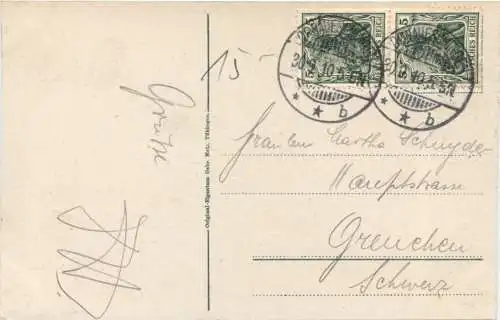 15-
Grüße
Original-Eigentum Gebr. Metz, Tübingen.
5
DEUTSCHES REICH
b
b
Fräulein Martha Schnyder
Hauptstrasse
Grenchen
Schweiz